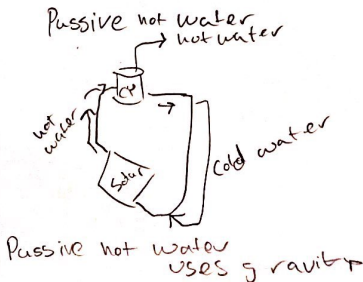 Passive hot water
hot water
hot
water
Solar
Cold water
Passive hot water
uses gravity